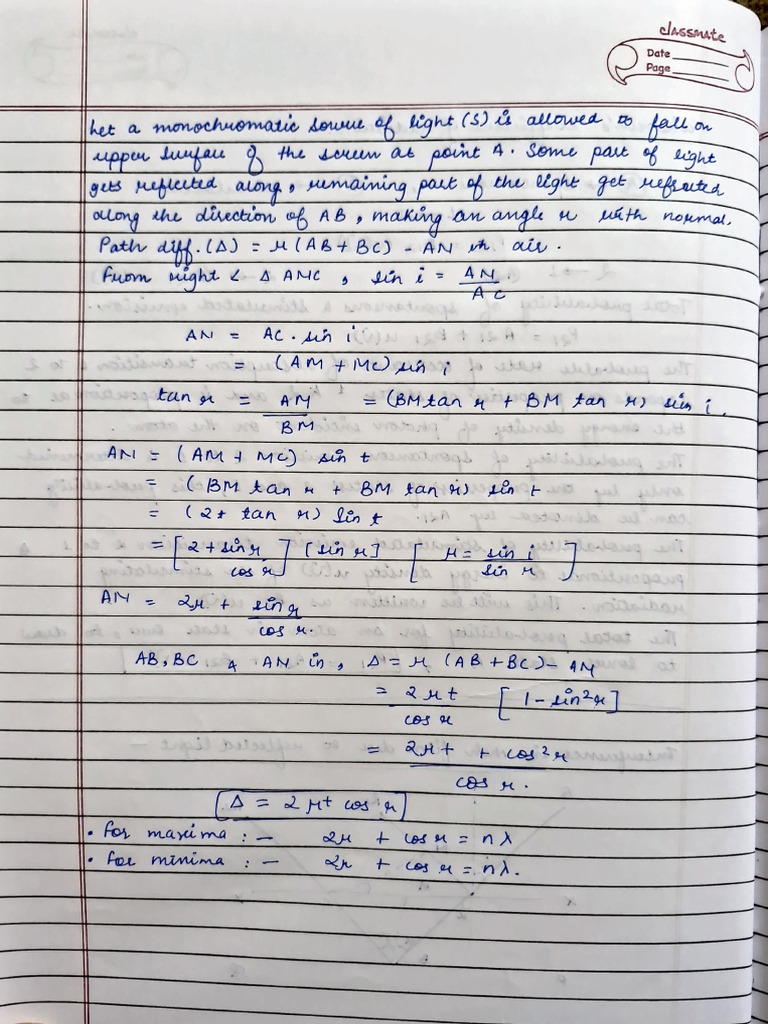 classmate
Date
Page
Let a monochromatic source of light (S) is allowed to fall on
upper surface of the screen at point A. Some part of light
gets reflected along, remaining part of the light get refracted
along the direction of AB, making an angle r with normal.
Path diff. (Δ) = μ (AB + BC) - AN in air.
From right < Δ ANC, sin i = AN/AC
AN = AC . sin i
= (AM + MC) sin i
tan r = AM/BM = (BM tan r + BM tan r) sin i.
AN = (AM + MC) sin t
= (BM tan r + BM tan r) sin t
= (2t tan r) sin t.
= [2 + sin r/cos r] [sin r] [μ = sin i/sin r]
AN = 2μ + sin r/cos r.
AB, BC & AN in, Δ = μ (AB + BC) - AN
= 2μt/cos r [1 - sin²r]
= 2μt + cos²r/cos r.
Δ = 2μt cos r
• For maxima : — 2μ + cos r = nλ
• For minima : — 2μ + cos r = nλ.